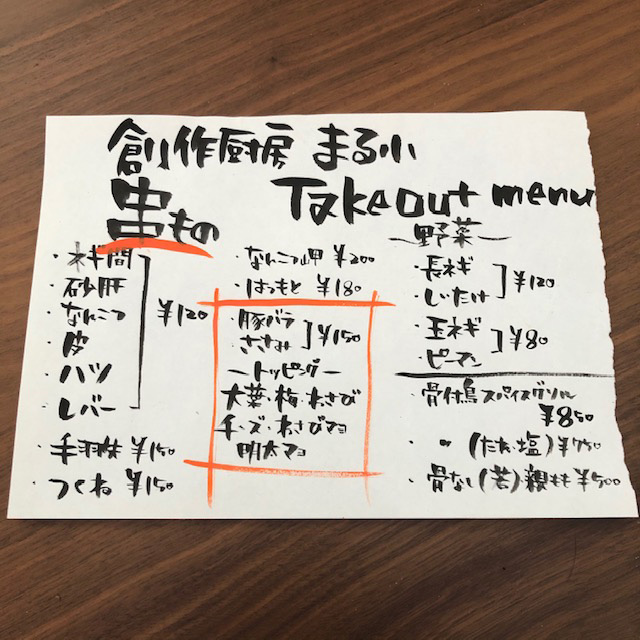 創作厨房 まる小
串もの
Takeout menu
・ネギ間
・砂肝
・なんこつ
・皮
・ハツ
・レバー
¥120
・手羽先 ¥150
・つくね ¥150
・なんこつ岬 ¥200
・はつもと ¥180
・豚バラ
・ささみ
¥150
ートッピングー
大葉・梅・わさび
チーズ・わさびマヨ
明太マヨ
〜野菜〜
・長ネギ
・しいたけ
¥120
・玉ネギ
・ピーマン
¥80
・骨付鳥スパイスグリル
¥850
・〃 (たれ・塩) ¥750
・骨なし(若)・親もも ¥500